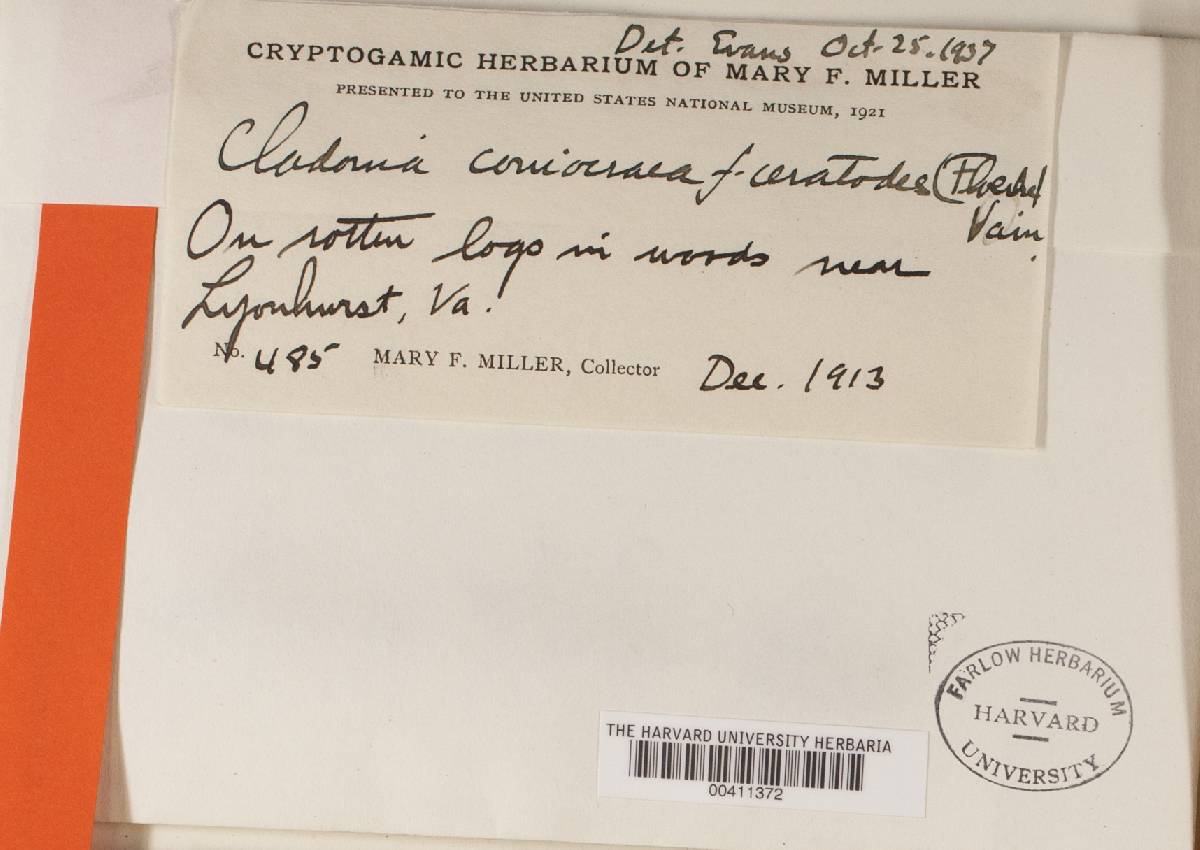 Det. Evans Oct. 25. 1937
CRYPTOGAMIC HERBARIUM OF MARY F. MILLER
PRESENTED TO THE UNITED STATES NATIONAL MUSEUM, 1921
Cladonia coniocraea f. ceratodes (Floerke)
Vain.
On rotten logs in woods near
Lyonhurst, Va.
No. 485 MARY F. MILLER, Collector Dec. 1913
FARLOW HERBARIUM
HARVARD
UNIVERSITY
THE HARVARD UNIVERSITY HERBARIA
00411372